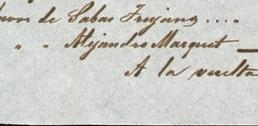 de Sabas Friyano....
" " Alejandro Marquet
A la vuelta